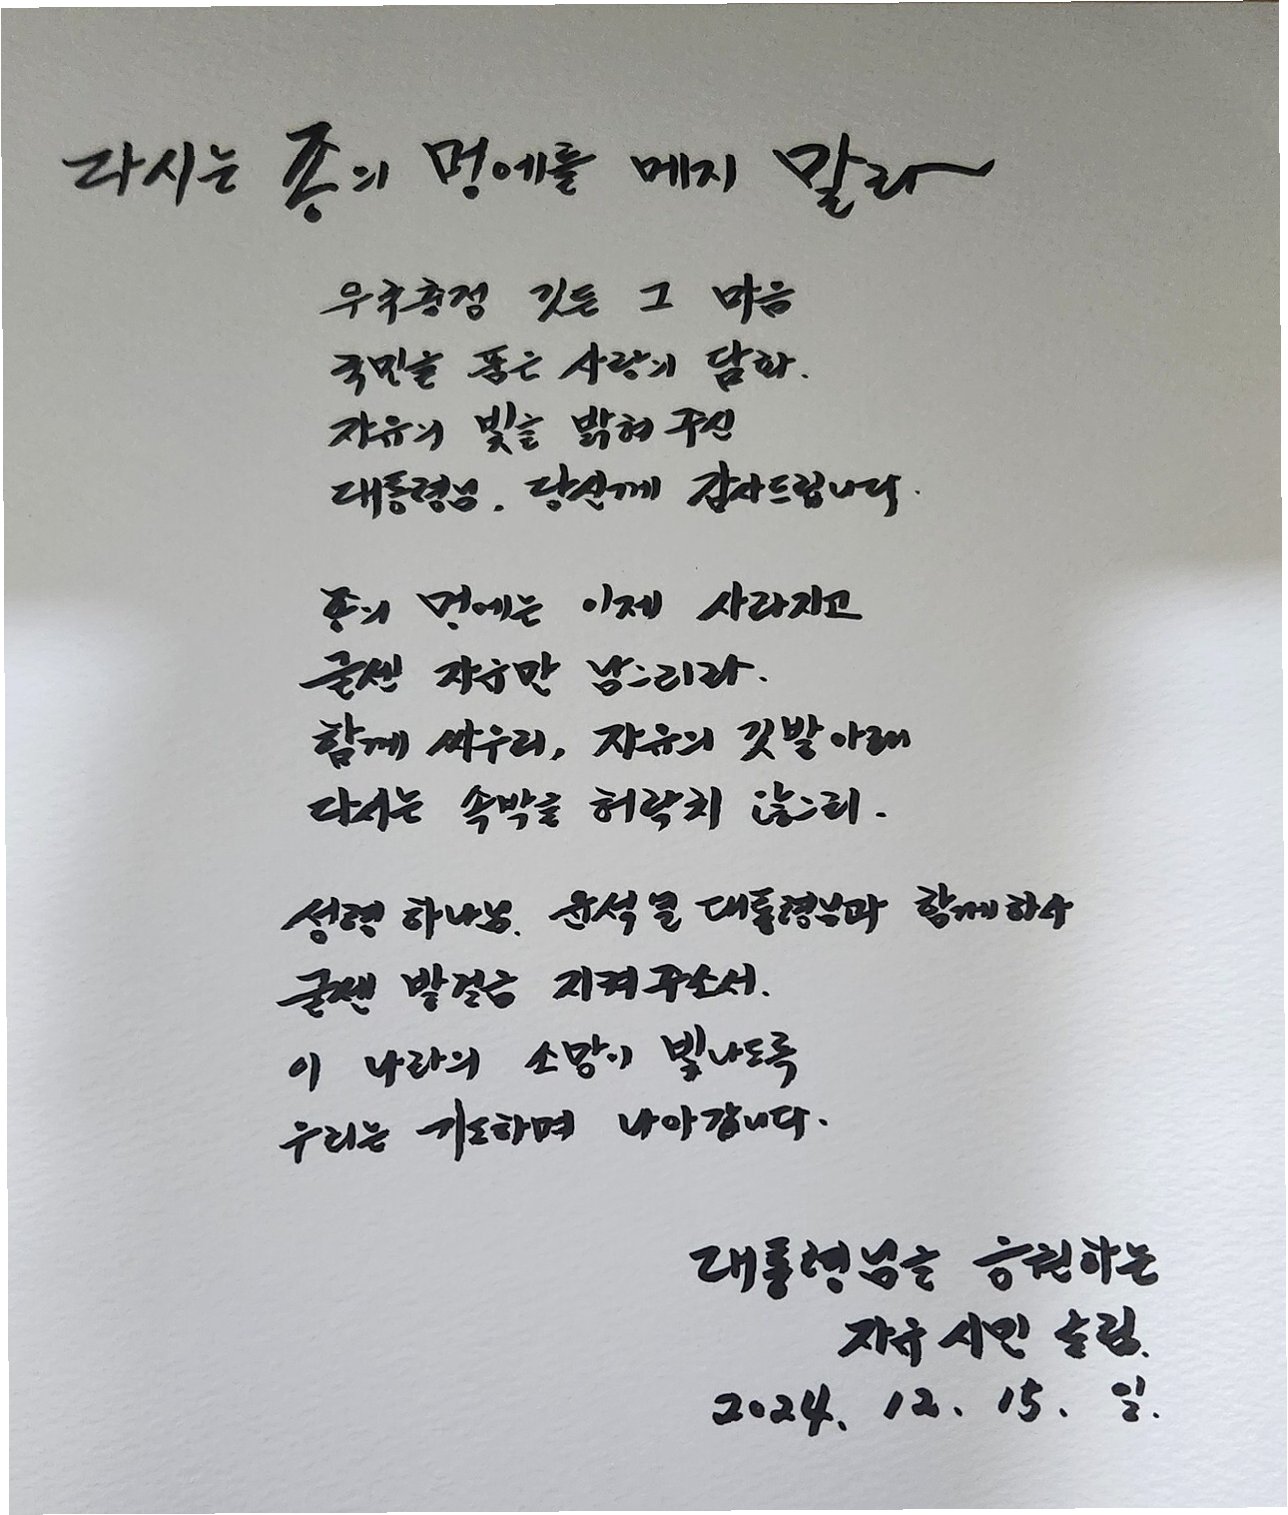 다시는 종의 멍에를 메지 말라
우국충정 깃든 그 마음
국민을 품은 사랑의 담화.
자유의 빛을 밝혀 주신
대통령님, 당신께 감사드립니다.
종의 멍에는 이제 사라지고
굳센 자유만 남으리라.
함께 싸우리, 자유의 깃발 아래
다시는 속박을 허락치 않으리.
성령 하나님, 윤석열 대통령님과 함께하사
굳센 발걸음 지켜주소서.
이 나라의 소망이 빛나도록
우리는 기도하며 나아갑니다.
대통령님을 응원하는
자유 시민 올림.
2024. 12. 15. 일.